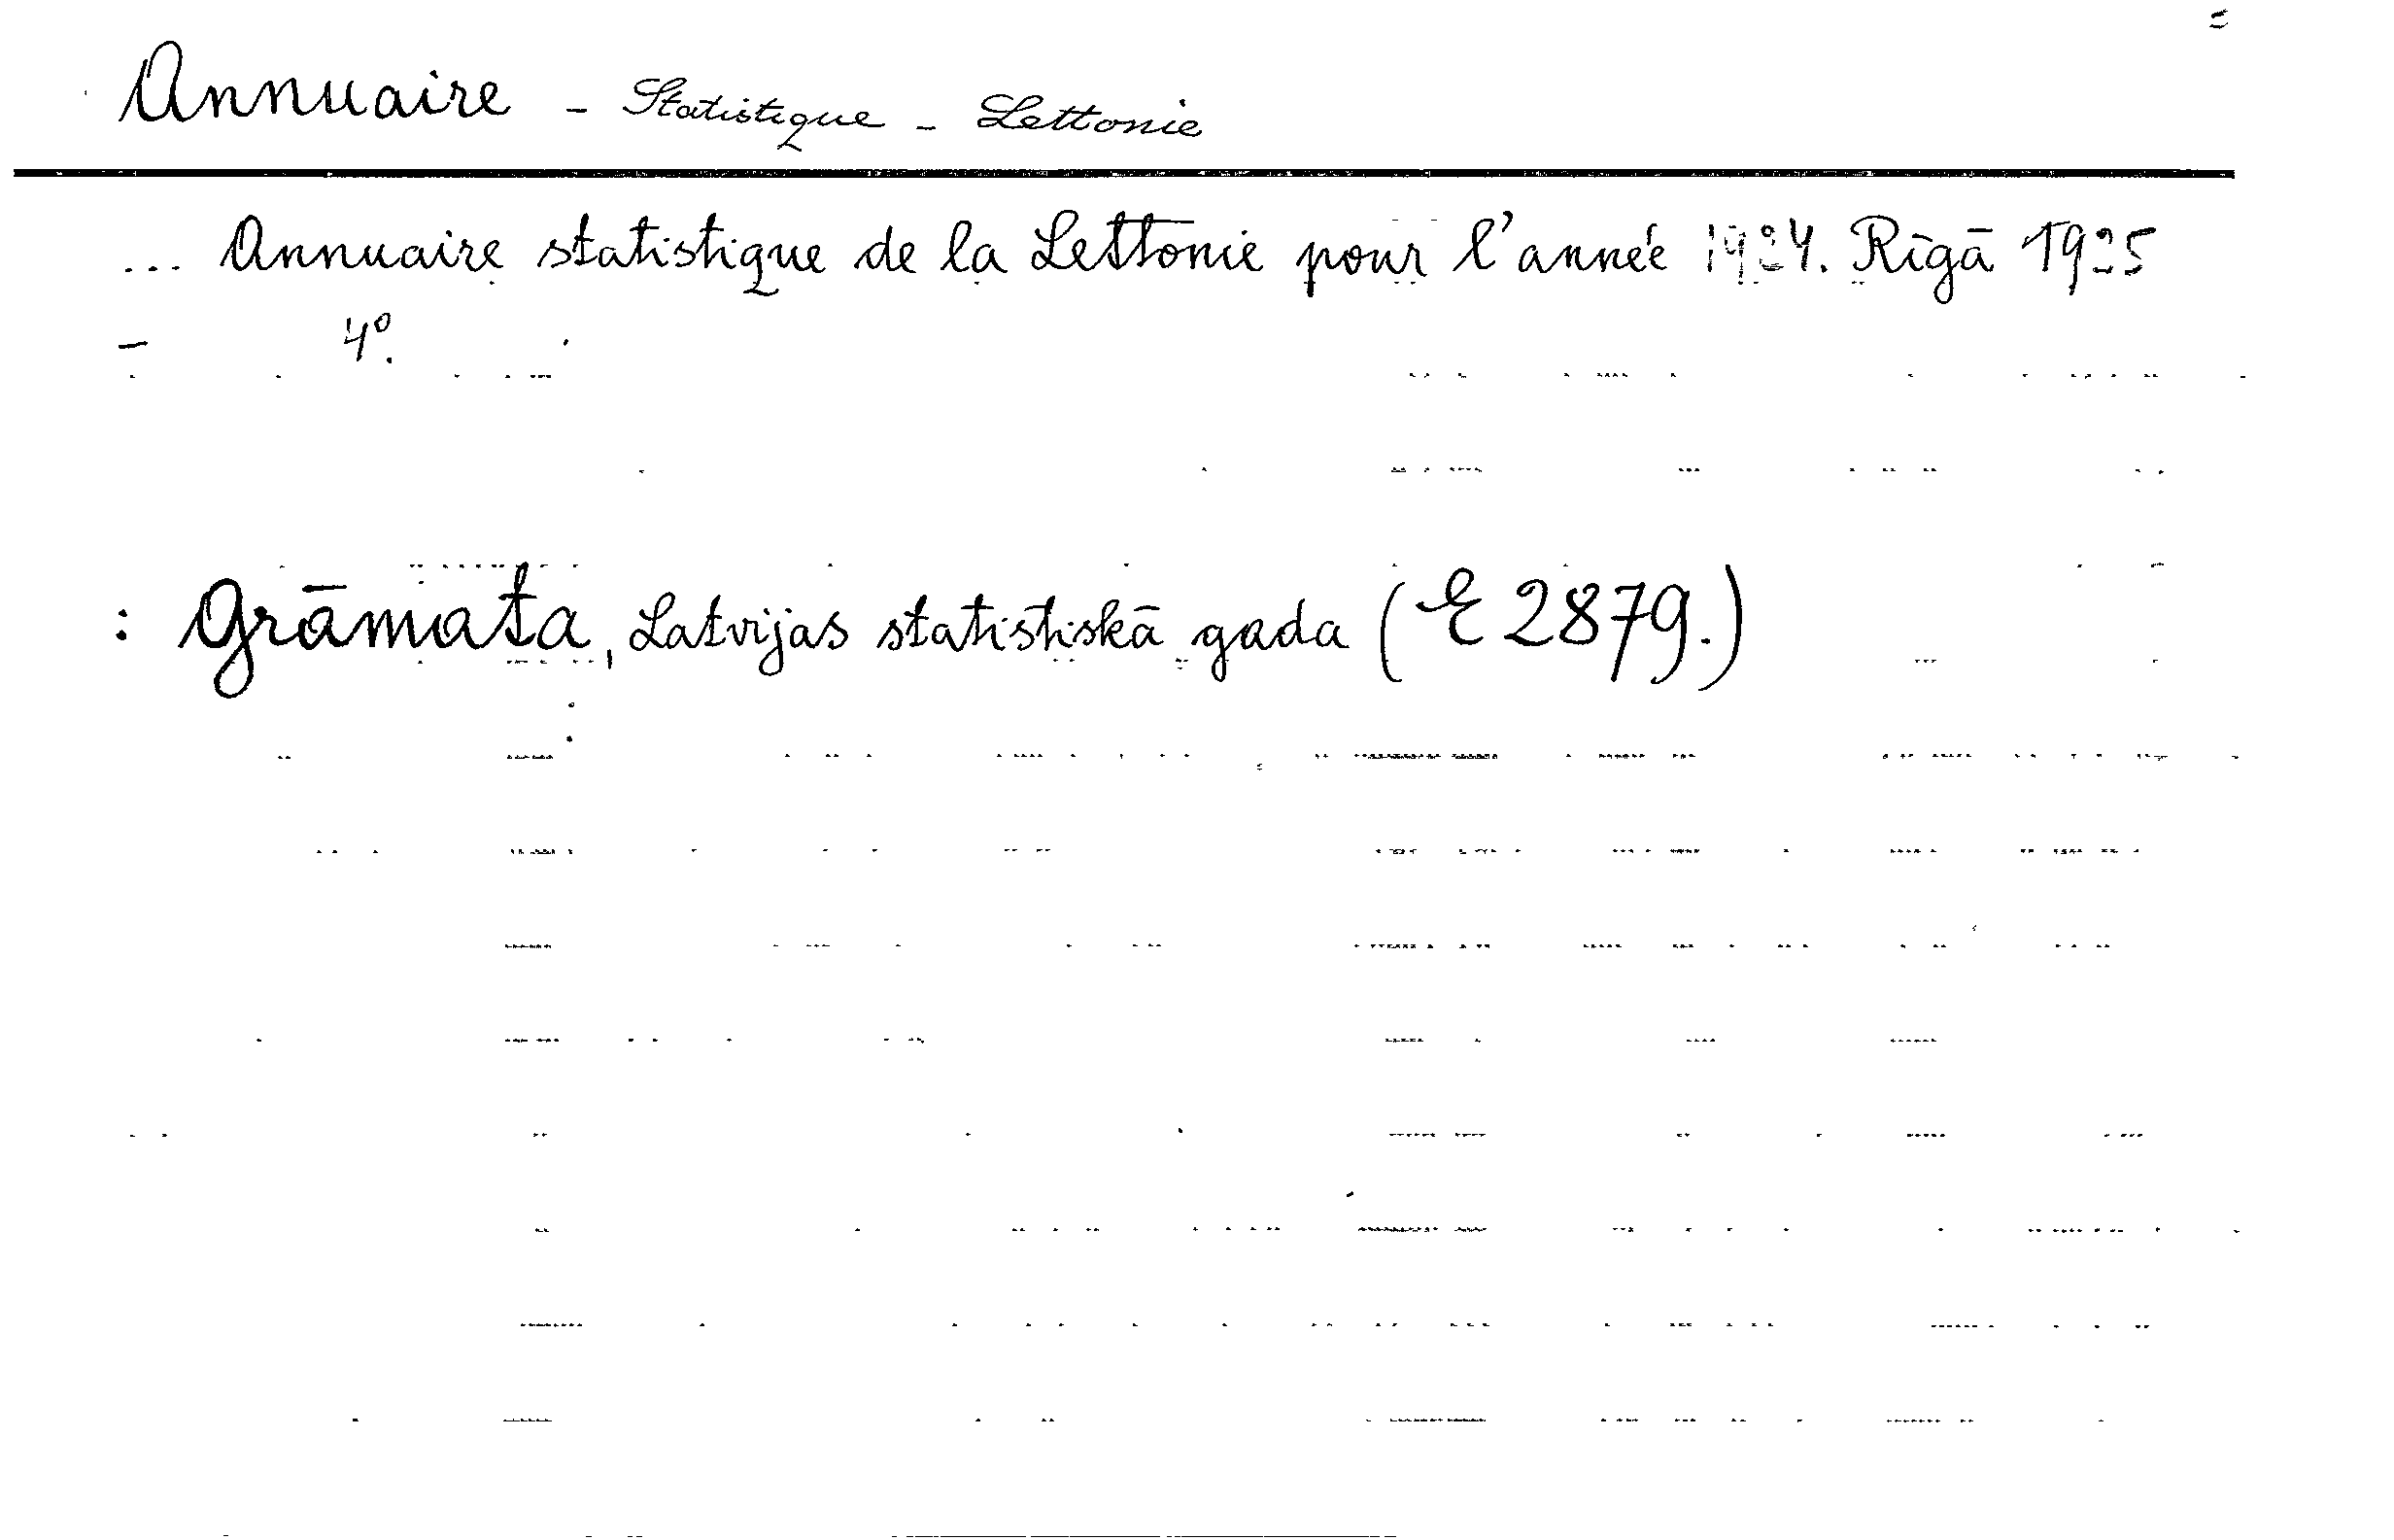 Annuaire - Statistique - Lettonie
... Annuaire statistique de la Lettonie pour l'année 1924. Rīgā 1925
— 4°.
: Grāmata, Latvijas statistiskā gada (E 2879.)